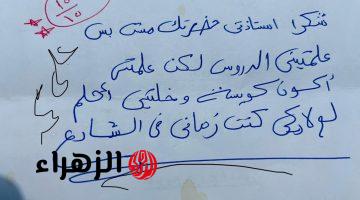 ١٠/١٠
شكرا استاذتى حضرتك مش بس
علمتينى الدروس لكن علمتنى
أكون كويسة وخلتنى أحلم
لولاكى كنت زمانى فى الشارع
الزهراء